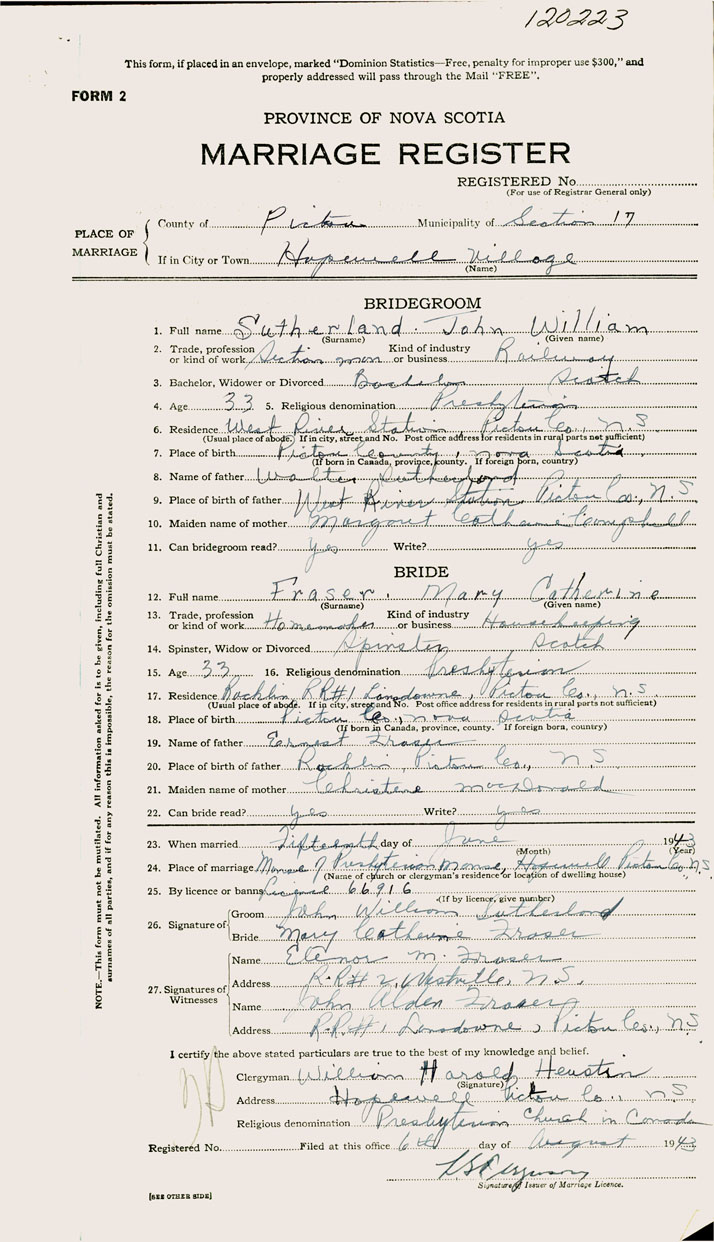 120223
This form, if placed in an envelope, marked "Dominion Statistics—Free, penalty for improper use $300," and
properly addressed will pass through the Mail "FREE".
FORM 2
PROVINCE OF NOVA SCOTIA
MARRIAGE REGISTER
REGISTERED No.
(For use of Registrar General only)
PLACE OF MARRIAGE
County of Pictou Municipality of Section 17
If in City or Town Hopewell Village
(Name)
BRIDEGROOM
1. Full name Sutherland. John William
(Surname) (Given name)
2. Trade, profession or kind of work Section man Kind of industry or business Railway
3. Bachelor, Widower or Divorced Bachelor Scotch
4. Age 33 5. Religious denomination Presbyterian
6. Residence West River Station, Pictou Co., N.S
(Usual place of abode. If in city, street and No. Post office address for residents in rural parts not sufficient)
7. Place of birth Pictou County, Nova Scotia
(If born in Canada, province, county. If foreign born, country)
8. Name of father Walter Sutherland
9. Place of birth of father West River Station Pictou Co., N.S
10. Maiden name of mother Margaret Catherine Campbell
11. Can bridegroom read? Yes Write? yes
BRIDE
12. Full name Fraser, Mary Catherine
(Surname) (Given name)
13. Trade, profession or kind of work Homemaker Kind of industry or business Housekeeping
14. Spinster, Widow or Divorced Spinster Scotch
15. Age 33 16. Religious denomination Presbyterian
17. Residence Rocklin RR#1 Lansdowne, Pictou Co., N.S
(Usual place of abode. If in city, street and No. Post office address for residents in rural parts not sufficient)
18. Place of birth Pictou Co., Nova Scotia
(If born in Canada, province, county. If foreign born, country)
19. Name of father Earnest Fraser
20. Place of birth of father Rocklin, Pictou Co., N.S
21. Maiden name of mother Christene MacDonald
22. Can bride read? yes Write? yes
23. When married fifteenth day of June 1943
(Month) (Year)
24. Place of marriage Presbyterian Manse, Hopewell Pictou Co. N.S.
(Name of church or clergyman's residence or location of dwelling house)
25. By licence or banns License 66916
(If by licence, give number)
26. Signature of
Groom John William Sutherland
Bride Mary Catherine Fraser
27. Signatures of Witnesses
Name Elenor M. Fraser
Address R.R# 2, Westville, N.S.
Name John Alden Fraser
Address R.R.#1, Lansdowne, Pictou Co., N.S
I certify the above stated particulars are true to the best of my knowledge and belief.
Clergyman William Harold Heustin
(Signature)
Address Hopewell Pictou Co., N.S
Religious denomination Presbyterian Church in Canada
Registered No. Filed at this office 6th day of August 1943
Signature of Issuer of Marriage Licence.
[SEE OTHER SIDE]
NOTE.—This form must not be mutilated. All information asked for is to be given, including full Christian and
surnames of all parties, and if for any reason this is impossible, the reason for the omission must be stated.